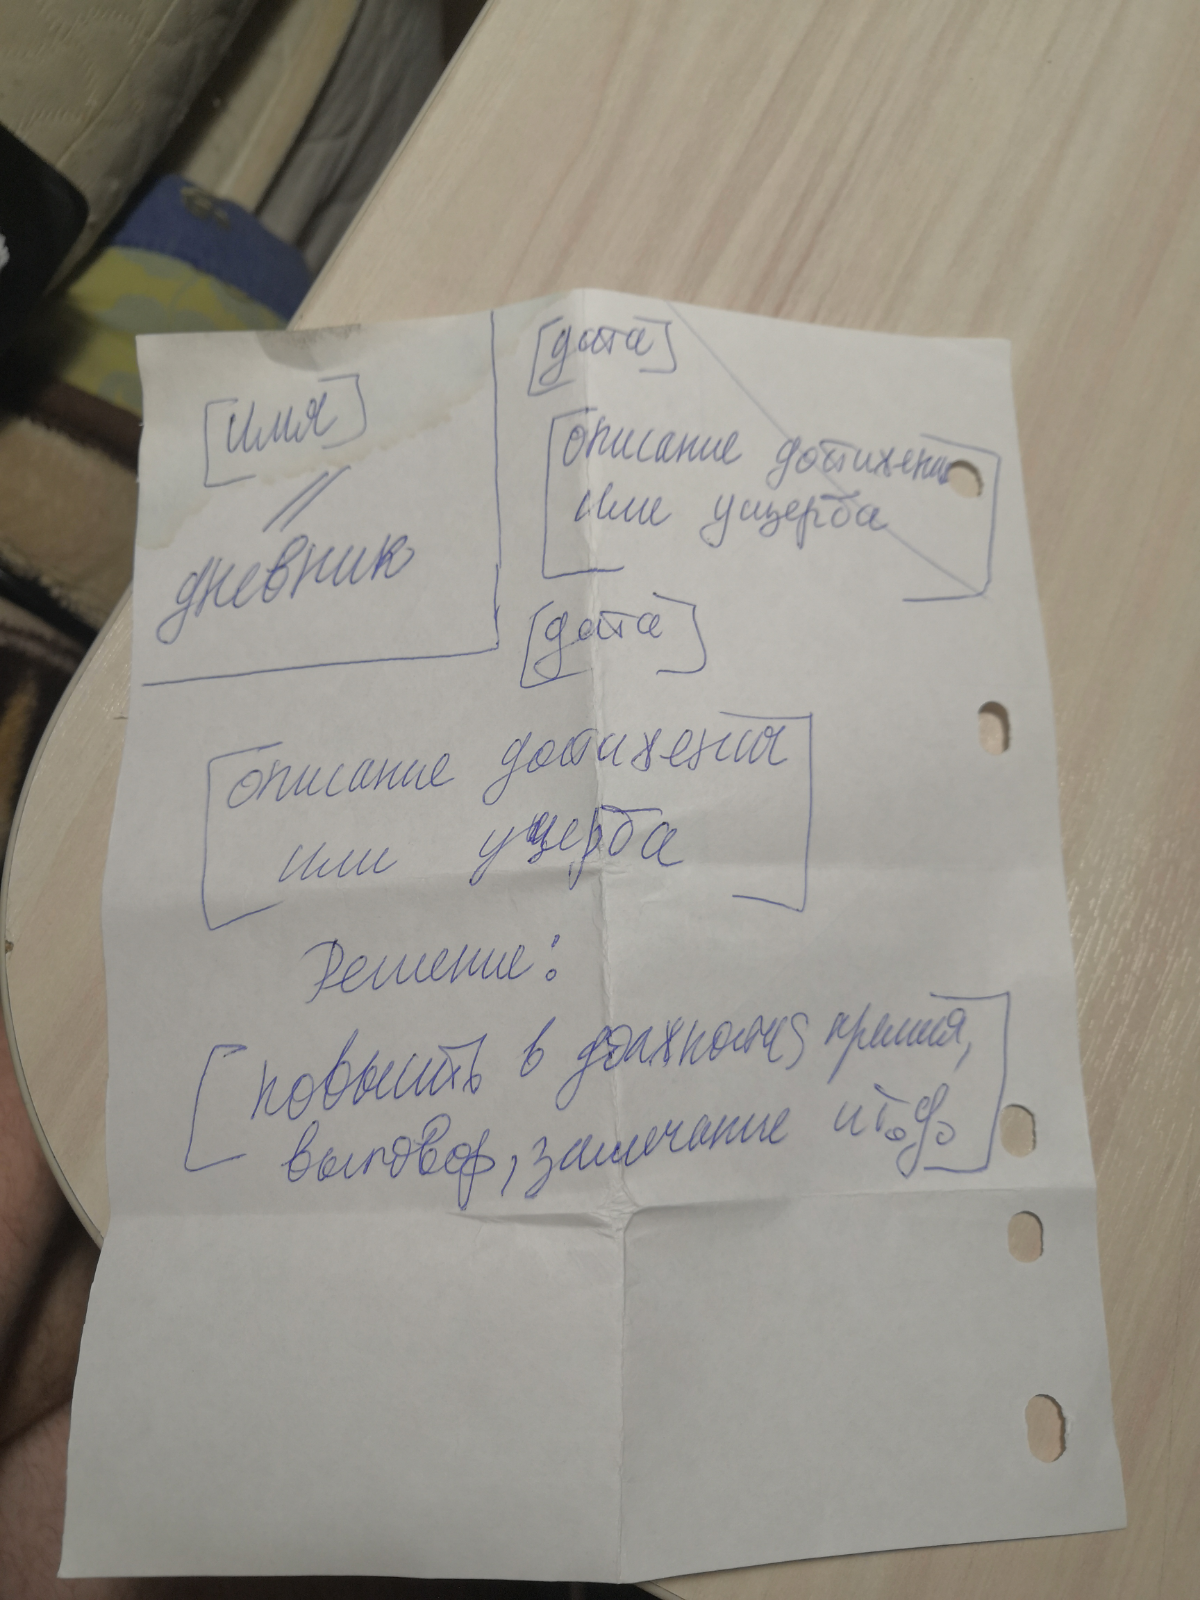 [имя]
//
дневник
[дата]
[описание достижения
или ущерба]
[дата]
[описание достижения
или ущерба]
Решение:
[повысить в должности, премия,
выговор, замечание и т.д.]